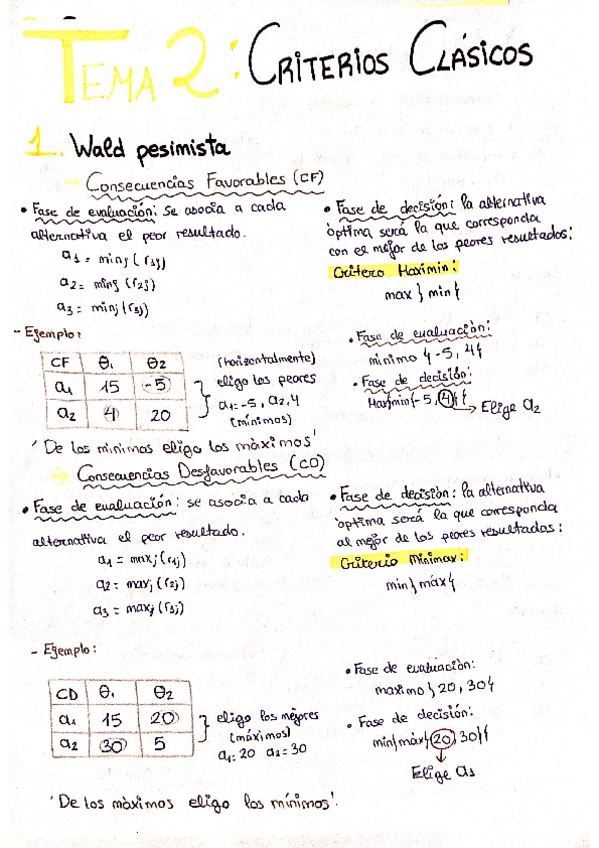 TEMA 2: CRITERIOS CLÁSICOS
1. Wald pesimista
Consecuencias Favorables (CF)
• Fase de evaluación: se asocia a cada
alternativa el peor resultado.
a1 = minj (r1j)
a2 = minj (r2j)
a3 = minj (r3j)
• Fase de decisión: la alternativa
óptima será la que corresponda
con el mejor de los peores resultados:
Critero Maximin:
max } min {
- Ejemplo:
CF θ1 θ2
a1 15 -5
a2 4 20
(horizontalmente)
eligo los peores
a1=-5, a2,4
(mínimos)
• Fase de evaluación:
mínimo { -5, 4 {
• Fase de decisión:
Max{min{-5, 4}{ → Elige a2
'De los mínimos eligo los máximos'
→ Consecuencias Desfavorables (CD)
• Fase de evaluación: se asocia a cada
alternativa el peor resultado.
a1 = maxj (r1j)
a2 = maxj (r2j)
a3 = maxj (r3j)
• Fase de decisión: la alternativa
óptima será la que corresponda
al mejor de los peores resultados:
Criterio Minimax:
min } máx {
- Ejemplo:
CD θ1 θ2
a1 15 20
a2 30 5
eligo los mejores
(máximos)
a1: 20 a2 = 30
• Fase de evaluación:
maximo } 20, 30 {
• Fase de decisión:
min{máx{20, 30}{
Elige a1
'De los máximos eligo los mínimos'.